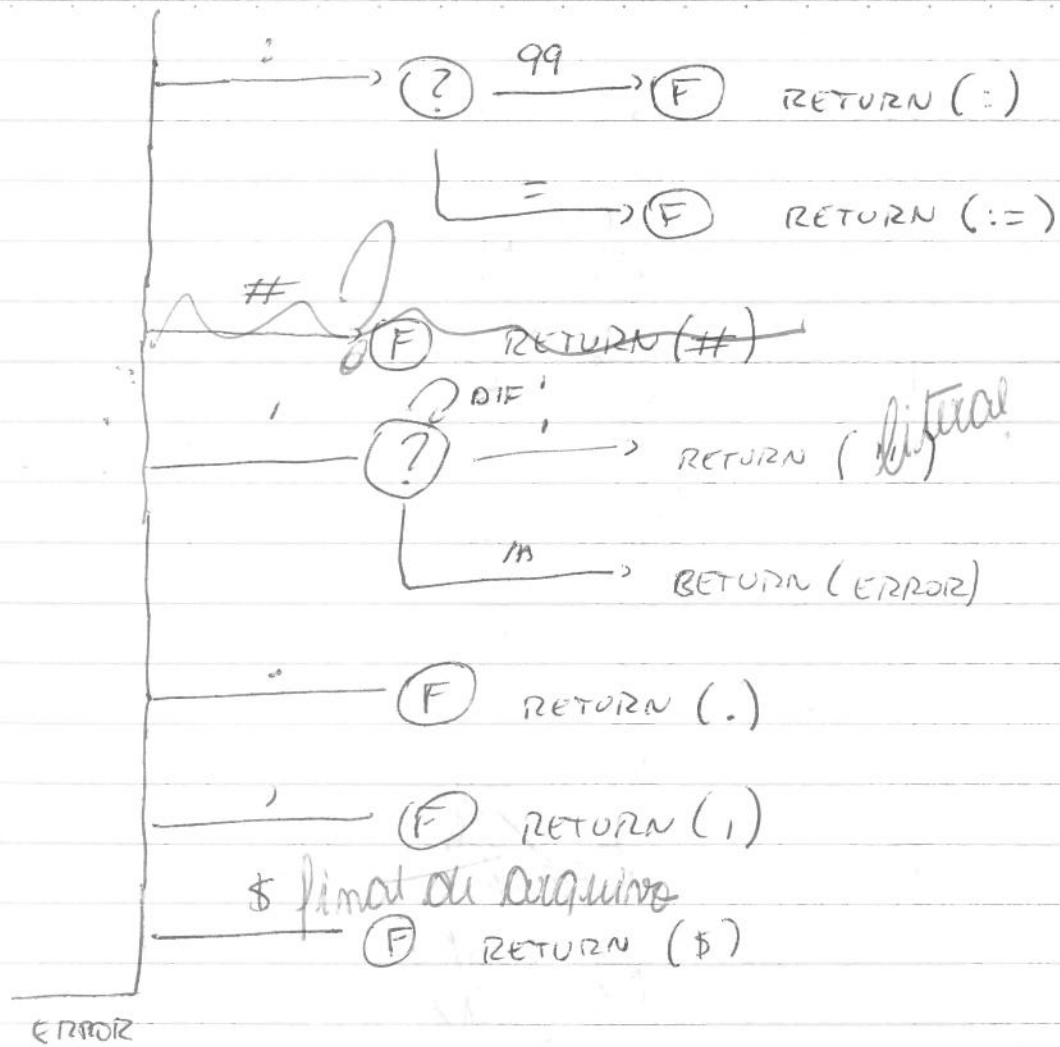 : ? 99 F RETURN (:)
= F RETURN (:=)
# F RETURN (#)
DIF '
' ? ' RETURN ( literal
RETURN (ERROR)
. F RETURN (.)
, F RETURN (,)
$ final de arquivo
F RETURN ($)
ERROR